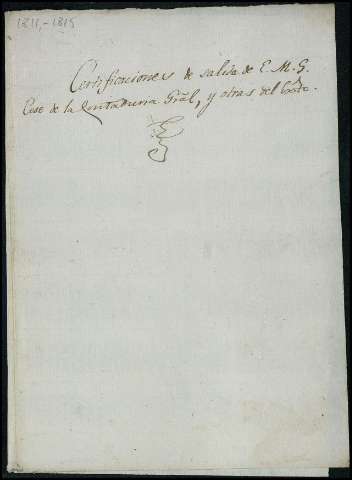 1811,-1815
Certificaciones de salida de E. M. G.
Cese de la Contaduria Gral, y otras del Exto.